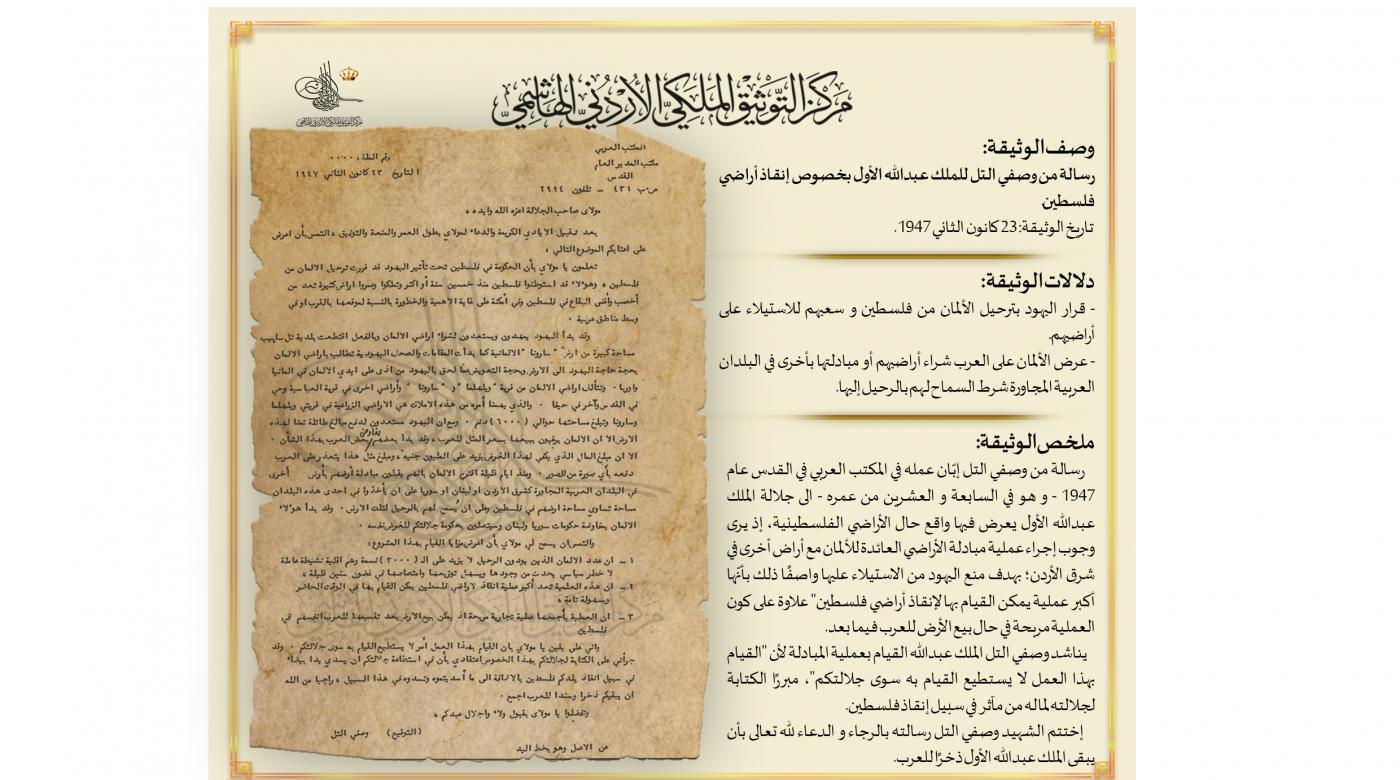 مركز التوثيق الملكي الأردني الهاشمي
وصف الوثيقة:
رسالة من وصفي التل للملك عبدالله الأول بخصوص إنقاذ أراضي
فلسطين
تاريخ الوثيقة:23 كانون الثاني 1947.
دلالات الوثيقة:
- قرار اليهود بترحيل الألمان من فلسطين و سعيهم للاستيلاء على
أراضيهم.
- عرض الألمان على العرب شراء أراضيهم أو مبادلتها بأخرى في البلدان
العربية المجاورة شرط السماح لهم بالرحيل إليها.
ملخص الوثيقة:
رسالة من وصفي التل إبّان عمله في المكتب العربي في القدس عام
1947 - و هو في السابعة و العشرين من عمره - الى جلالة الملك
عبدالله الأول يعرض فيها واقع حال الأراضي الفلسطينية، إذ يرى
وجوب إجراء عملية مبادلة الأراضي العائدة للألمان مع أراض أخرى في
شرق الأردن؛ بهدف منع اليهود من الاستيلاء عليها واصفًا ذلك بأنّها
أكبر عملية يمكن القيام بها لإنقاذ أراضي فلسطين" علاوة على كون
العملية مربحة في حال بيع الأرض للعرب فيما بعد.
يناشد وصفي التل الملك عبدالله القيام بعملية المبادلة لأن "القيام
بهذا العمل لا يستطيع القيام به سوى جلالتكم"، مبررًا الكتابة
لجلالته لما له من مآثر في سبيل إنقاذ فلسطين.
إختتم الشهيد وصفي التل رسالته بالرجاء و الدعاء لله تعالى بأن
يبقى الملك عبدالله الأول ذخرًا للعرب.
المكتب العربي
مكتب المدير العام
القدس
ص٠ب ٤٣١ – تلفون ٢٩١٤
رقم الملف ٠٠٠٠
التاريخ ٢٣ كانون الثاني ١٩٤٧
مولاي صاحب الجلالة اعزه الله وايده ٠
بعد تقبيل الايادي الكريمة والدعاء لمولاي بطول العمر والمنعة والتوفيق ، التمس بأن اعرض
على اعتابكم الموضوع التالي ٠
تعلمون يا مولاي بأن الحكومة في فلسطين تحت تأثير اليهود قد قررت ترحيل الالمان من
فلسطين ، وهوءلاء قد استوطنوا فلسطين منذ خمسين سنة أو اكثر وتملكوا وعمروا اراض كثيرة تعد من
أخصب وأغنى البقاع في فلسطين وفي أمكنة على غاية الاهمية والخطورة بالنسبة لموقعها بالقرب او في
وسط مناطق عربية ٠
وقد بدأ اليهود يمهدون ويستعدون لشراء اراضي الالمان وبالفعل اقتطعت بلدية تل ابيب
مساحة كبيرة من ارض " سارونا " الالمانية كما بدأت المقامات والصحف اليهودية تطالب باراضي الالمان
بحجة حاجة اليهود الى الارض وبحجة التعويض عما لحق باليهود من اذى على ايدي الالمان في المانيا
واوربا ٠ وتتألف اراضي الالمان من قرية " ويلهلما " و " سارونا " وأراضي اخرى في قرية العباسية وحي
في القدس وآخر في حيفا ٠ والذي يهمنا أمره من هذه الاملاك هي الاراضي الزراعية في قريتي ويلهلما
وسارونا وتبلغ مساحتها حوالي ( ٦٠٠٠ ) دنم ٠ ومع ان اليهود مستعدون لدفع مبالغ طائلة ثمنا لهذه
الارض الا ان الالمان يرغبون ببيعها بسعر المثل للعرب ، وقد بدأ بعضهم يفاوض بعض العرب بهذا الشأن ٠
الا ان مبلغ المال الذي يكفي لهذا الغرض يزيد على المليون جنيه ، ومبلغ مثل هذا يتعذر على العرب
دفعه بأي صورة من الصور ٠ ومنذ ايام قليلة اقترح الالمان بانهم يقبلون مبادلة أرضهم بأرض أخرى
في البلدان العربية المجاورة كشرق الاردن او لبنان او سوريا على ان يأخذوا في احدى هذه البلدان
مساحة تساوي مساحة ارضهم في فلسطين وعلى ان يُسمح لهم بالرحيل لتلك الارض ٠ وقد بدأ هوءلاء
الالمان بمفاوضة حكومات سوريا ولبنان وسيتصلون بحكومة جلالتكم للغرض نفسه ٠
والتمس ان يسمح لي مولاي بأن اعرض مزايا القيام بهذا المشروع :
١ – ان عدد الالمان الذين يودون الرحيل لا يزيد على الـ ( ٣٠٠٠ ) نسمة وهم اقلية نشيطة عاملة
لا خطر سياسي يحدث من وجودها ويسهل توزيعها وامتصاصها في غضون سنين قليلة ،
٢ – ان هذه العلمية تعد أكبر عملية انقاذ لاراضي فلسطين يمكن القيام بها في الوقت الحاضر
وبسهولة تامة ،
٣ – ان العملية بأجمعها عملية تجارية مربحة اذ يمكن بيع الارض بعد تقسيمها للعرب انفسهم في
فلسطين
واني على يقين يا مولاي بان القيام بهذا العمل أمر لا يستطيع القيام به سوى جلالتكم ٠ وقد
جرأني على الكتابة لجلالتكم بهذا الخصوص اعتقادي بأن في استطاعة جلالتكم ان يسدي يدا بيضاء
في سبيل انقاذ بلدكم فلسطين بالاضافة الى ما أسديتموه وتسدوه في هذا السبيل ، راجيا من الله
ان يبقيكم ذخرا وسندا للعرب اجمع ٠
وتفضلوا يا مولاي بقبول ولاء واجلال عبدكم ،
( التوقيع ) وصفي التل
عن الاصل وهو بخط اليد